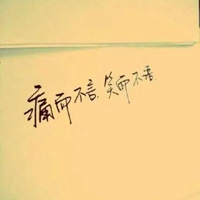 痛而不言,笑而不语.